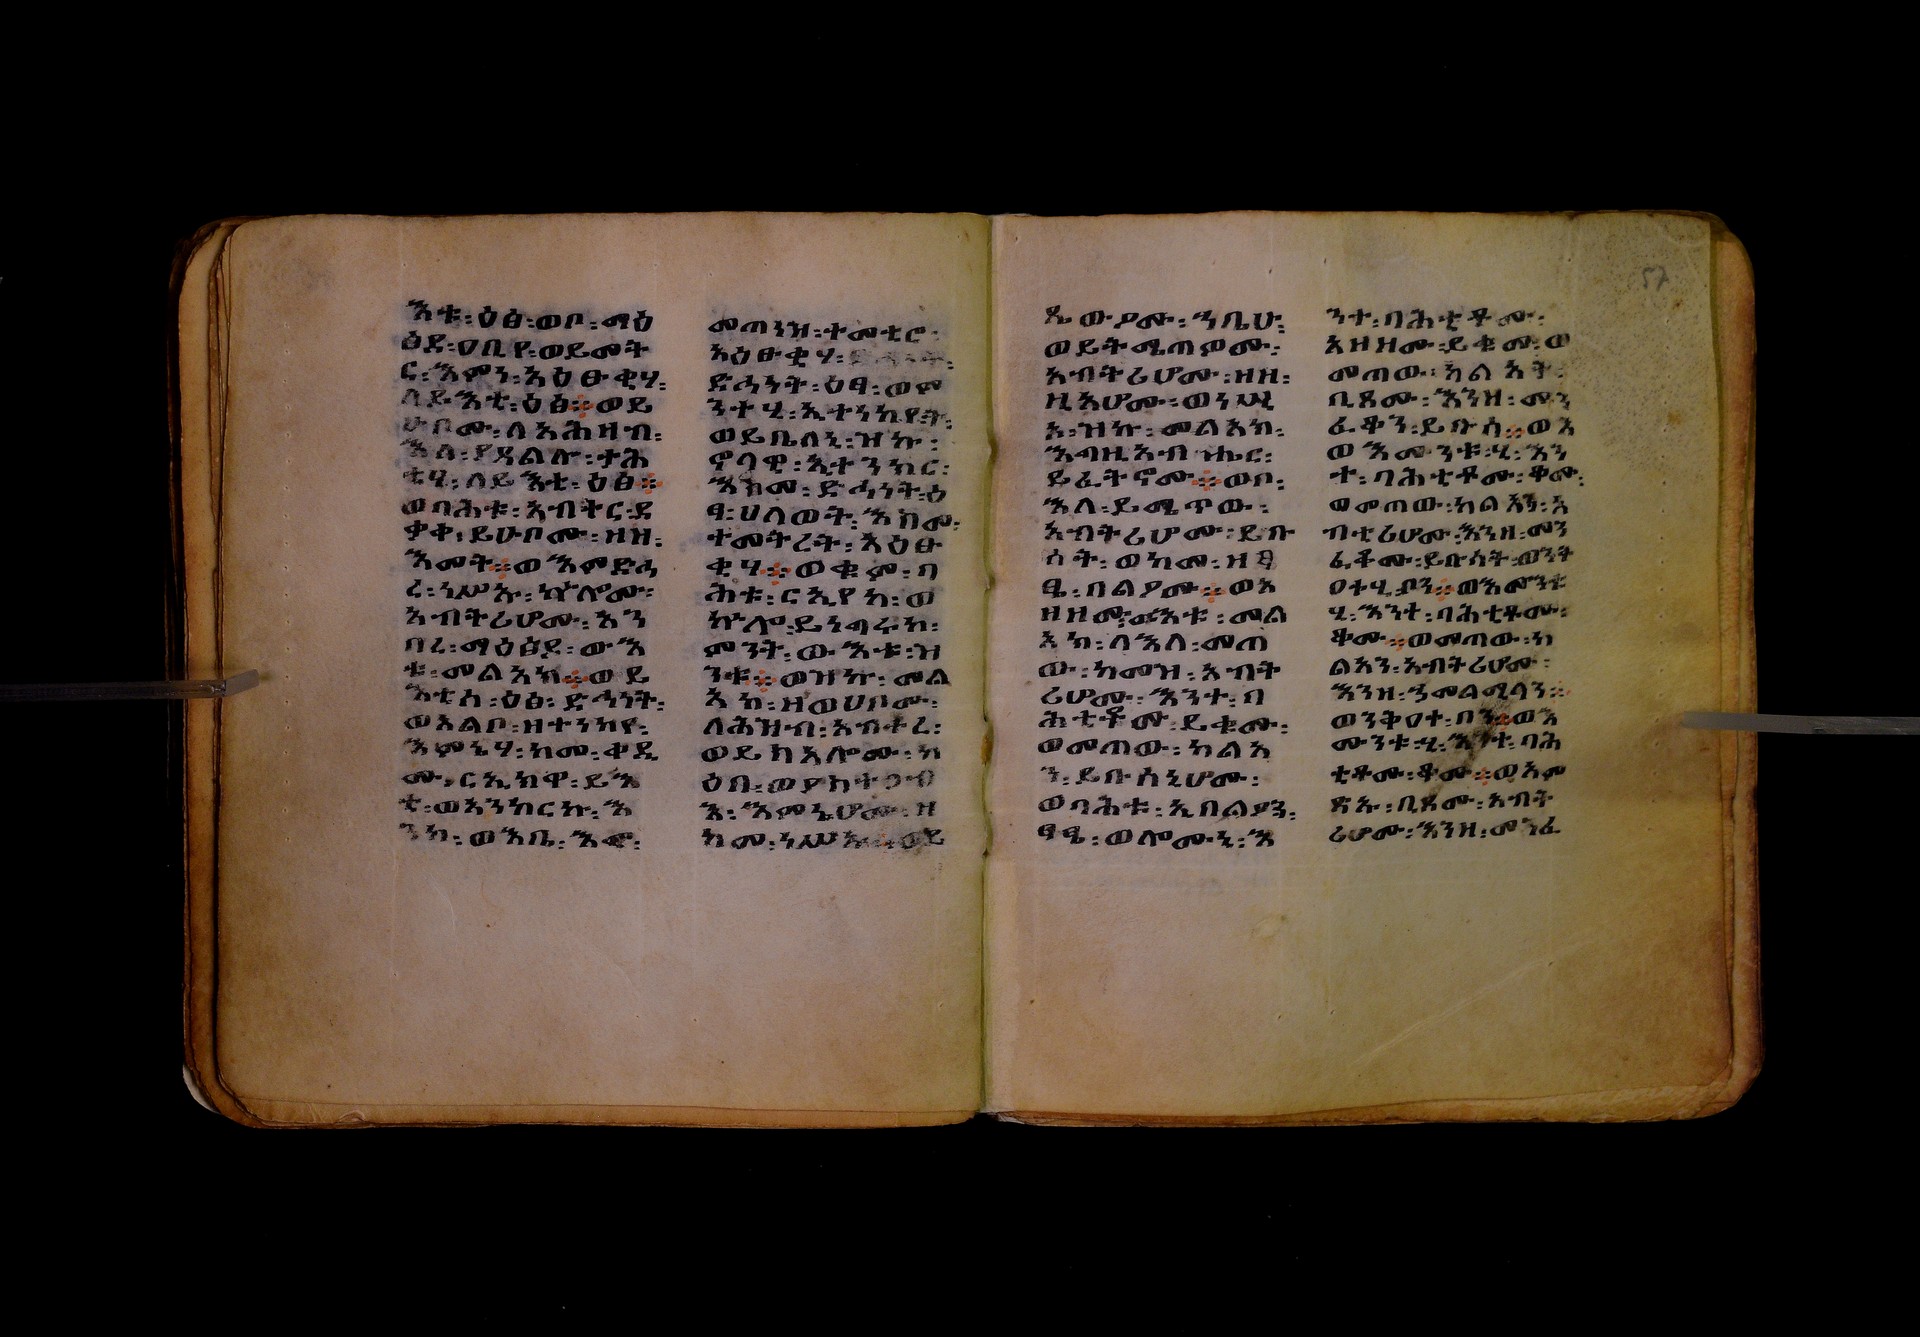 እቱ፡ዕፅ፡ወቦ፡ማዕ
ፅደ፡ዐቢየ፡ወይመት
ር፡እምን፡አዕፁቂሃ፡
ለይእቲ፡ዕፅ፨ወይ
ሁቦሙ፡ለአሕዛብ፡
እለ፡ያዳልሉ፡ታሕ
ቲሃ፡ለይእቲ፡ዕፅ፨
ወባሕቱ፡አብትር፡ደ
ቃቀ፡ይሁቦሙ፡ዘዘ፡
እመት፨ወእምድኅ
ረ፡ነሥኡ፡ኵሎሙ፡
አብትሪሆሙ፡አን
በረ፡ማዕፅደ፡ውእ
ቱ፡መልአክ፨ወይ
እቲሰ፡ዕፅ፡ድኅነት፡
ወአልቦ፡ዘተንከየ፡
እምኔሃ፡ከመ፡ቀዲ
ሙ፡ርኢክዋ፡ይእ
ቲ፡ወአንከርኩ፡እ
ንከ፡ወእቤ፡እፎ፡
መጠነዝ፡ተመቲሮ፡
አዕፁቂሃ፡
ድኅነት፡ዕፃ፡ወም
ንተሂ፡ኢተነክየት፡
ወይቤለኒ፡ዝኩ፡
ኖባዊ፡ኢተንክር፡
እክመ፡ድኅነት፡ዕ
ፃ፡ሀለወት፡እከመ፡
ተመትረት፡አዕፁ
ቂሃ፨ወቁም፡ባ
ሕቱ፡ርኢየከ፡ወ
ኵሎ፡ይነግሩከ፡
ምንት፡ውእቱ፡ዝ
ንቱ፨ወዝኩ፡መል
አክ፡ዘወሀቦሙ፡
ለሕዝብ፡አብትረ፡
ወይክአሎሙ፡ካ
ዕበ፡ወያስተጋብ
እ፡እምኔሆሙ፡ዘ
ከመ፡ነሥኡ፡ወይ
ጼውዖሙ፡ኀቤሁ፡
ወይትሜጠዎሙ፡
አብትሪሆሙ፡ዘዘ፡
ዚአሆሙ፡ወነሢ
ኦ፡ዝኩ፡መልአክ፡
እግዚአብሔር፡
ይፈትኖሙ፨ወቦ፡
እለ፡ይሜጥው፡
አብትሪሆሙ፡ይቡ
ሰት፡ወከመ፡ዘፃ
ፄ፡በልዖሙ፨ወአ
ዘዞሙ፡ውእቱ፡መል
አክ፡ለእለ፡መጠ
ው፡ከመዝ፡አብት
ሪሆሙ፡እንተ፡ባ
ሕቲቶሙ፡ይቁሙ፡
ወመጠው፡ካልአ
ን፡ይቡሰኒሆሙ፡
ወባሕቱ፡ኢበልዖን፡
ፃፄ፡ወሎሙኒ፡እ
ንተ፡ባሕቲቶሙ፡
አዘዞሙ፡ይቁሙ፡ወ
መጠው፡ካልኣት፡
ቢጾሙ፡እንዘ፡መን
ፈቆን፡ይቡስ፨ወእ
ወእሙንቱ፡ሂ፡እን
ተ፡ባሕቲቶሙ፡ቆሙ፡
ወመጠው፡ካልአን፡አ
ብቲሪሆሙ፡እንዘ፡መን
ፈቆሙ፡ይቡሰት፡ወንት
ዐተሂ፡ቦን፨ወእሙንቱ
ሂ፡እንተ፡ባሕቲቶሙ፡
ቆሙ፨ወመጠው፡ካ
ልአን፡አብትሪሆሙ፡
እንዘ፡ኀመልሚላን፨
ወንቅዐተ፡ቦን፨ወእ
ሙንቱ፡ሂ፡እንተ፡ባሕ
ቲቶሙ፡ቆሙ፨ወአም
ጽኡ፡ቢጾሙ፡አብት
ሪሆሙ፡እንዘ፡መንፈ